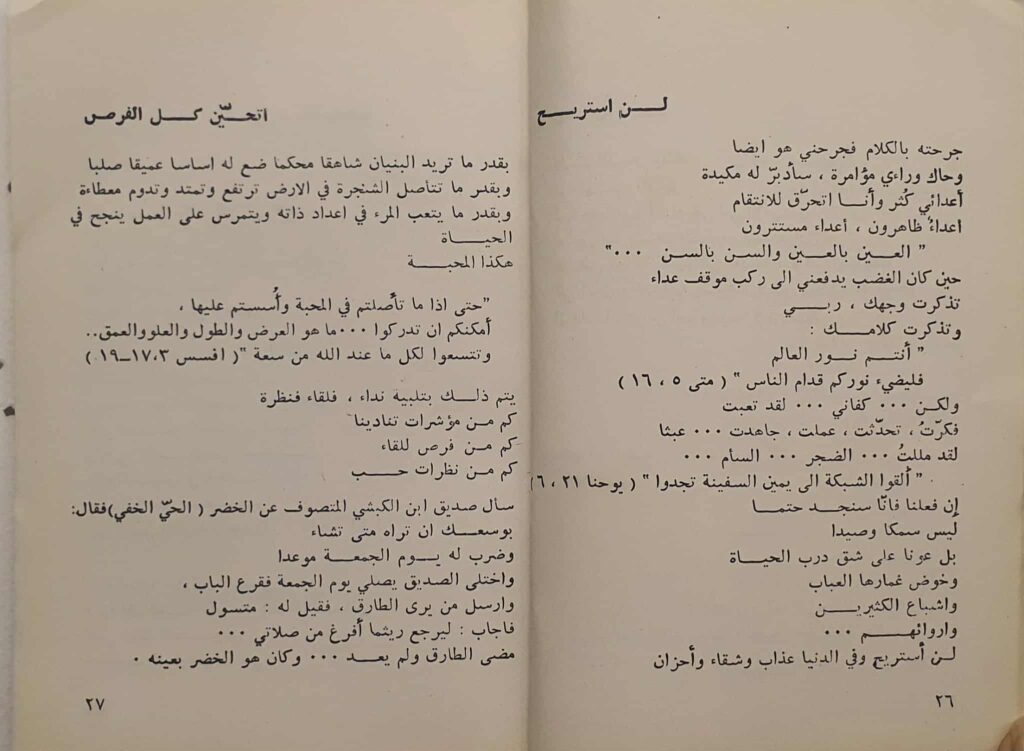 لـــن استريـــح
جرحته بالكلام فجرحني هو ايضا
وحاك وراءي مؤامرة ، سأدبرّ له مكيدة
أعدائي كُثر وأنــا اتحرّق للانتقام
اعداءُ ظاهرون ، أعداء مستترون
" العـــين بالعـــين والســـن بالســـن ٠٠٠"
حين كان الغضب يدفعني الى ركب موقف عداء
تذكرت وجهك ، ربـــي
وتذكرت كلامـــك :
" أنتـــم نـــور العالم
فليضيء نوركم قدام الناس " ( متى ٥ ، ١٦ )
ولكـن ٠٠٠ كفاني ٠٠٠ لقد تعبت
فكرّتُ ، تحدّثت ، عملت ، جاهدت ٠٠٠ عبثا
لقد مللتُ ٠٠٠ الضجر ٠٠٠ السأم ٠٠٠
" ألقوا الشبكة الى يمين السفينة تجدوا " ( يوحنا ٢١ ، ٦)
إن فعلنا فانّا سنجـــد حتمـــا
ليس سمكا وصيدا
بل عونا على شق درب الحيـــاة
وخوض غمارها العباب
واشباع الكثيريـــن
واروائهـــم ٠٠٠
لـن أستريح وفي الدنيا عذاب وشقاء وأحزان
٢٦
اتحيّن كـــل الفرص
بقدر ما تريد البنيان شاهقا محكما ضع له اساسا عميقا صلبا
وبقدر ما تتأصل الشجرة في الارض ترتفع وتمتد وتدوم معطاءة
وبقدر ما يتعب المرء في اعداد ذاته ويتمرس على العمل ينجح في
الحيـــاة
هكذا المحبـــة
"حتى اذا ما تأصلتم في المحبة وأُسستم عليها ،
أمكنكم ان تدركوا ٠٠٠ما هو العرض والطول والعلو والعمق..
وتتسعوا لكل ما عند الله من سعة "( افسس ١٧،٣–١٩ )
يتم ذلـــك بتلبية نداء ، فلقاء فنظرة
كم مـن مؤشرات تنادينا
كم مـن فرص للقاء
كم مـن نظرات حـــب
سأل صديق ابن الكبشي المتصوف عن الخضر ( الحيّ الخفي)فقال:
بوسعـــك ان تراه متى تشاء
وضرب له يـــوم الجمعـــة موعدا
واختلى الصديق يصلي يوم الجمعة فقرع الباب ،
وارسل من يرى الطارق ، فقيل له : متسول
فاجاب : ليرجع ريثما أفرغ من صلاتي ٠٠٠
مضى الطارق ولم يعـــد ٠٠٠ وكان هو الخضر بعينه ٠
٢٧